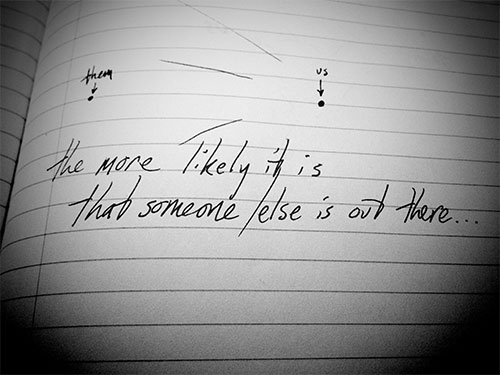 them us
the more likely it is
that someone else is out there...